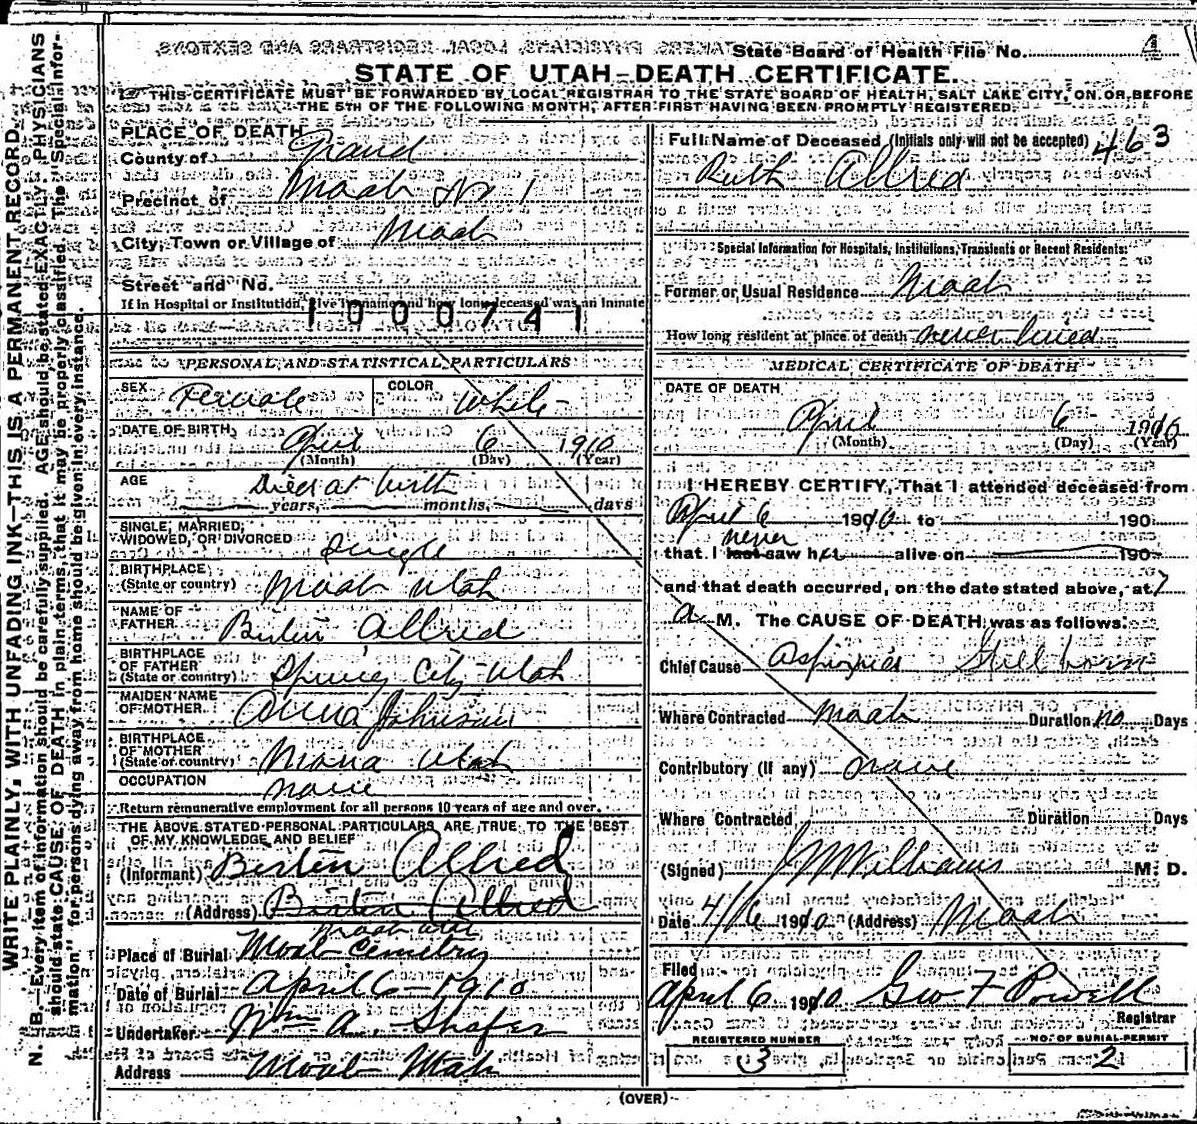 State Board of Health File No. 4
STATE OF UTAH—DEATH CERTIFICATE.
THIS CERTIFICATE MUST BE FORWARDED BY LOCAL REGISTRAR TO THE STATE BOARD OF HEALTH, SALT LAKE CITY, ON OR BEFORE
THE 5TH OF THE FOLLOWING MONTH, AFTER FIRST HAVING BEEN PROMPTLY REGISTERED.
WRITE PLAINLY, WITH UNFADING INK—THIS IS A PERMANENT RECORD.
N. B.—Every item of information should be carefully supplied. AGE should be stated EXACTLY. PHYSICIANS
should state CAUSE OF DEATH in plain terms, that it may be properly classified. The "Special Infor-
mation" for persons dying away from home should be given in every instance.
PLACE OF DEATH
County of Grand
Precinct of Moab No 1
City, Town or Village of Moab
Street and No.
If in Hospital or Institution, give its name and how long deceased was an inmate
1000741
PERSONAL AND STATISTICAL PARTICULARS
SEX Female COLOR White
DATE OF BIRTH April 6 1910
(Month) (Day) (Year)
AGE Died at birth
years, months, days
SINGLE, MARRIED,
WIDOWED, OR DIVORCED Single
BIRTHPLACE
(State or country) Moab Utah
NAME OF
FATHER Birten Allred
BIRTHPLACE
OF FATHER
(State or country) Spring City Utah
MAIDEN NAME
OF MOTHER Anna Johnson
BIRTHPLACE
OF MOTHER
(State or country) Mona Utah
OCCUPATION none
Return remunerative employment for all persons 10 years of age and over.
THE ABOVE STATED PERSONAL PARTICULARS ARE TRUE TO THE BEST
OF MY KNOWLEDGE AND BELIEF
(Informant) Birten Allred
(Address) Birten Allred
Moab Utah
Place of Burial Moab Cemetry
Date of Burial April 6 - 1910
Undertaker Wm A. Shafer
Address Moab Utah
Full Name of Deceased (Initials only will not be accepted) 463
Ruth Allred
Special Information for Hospitals, Institutions, Transients or Recent Residents:
Former or Usual Residence Moab
How long resident at place of death never lived
MEDICAL CERTIFICATE OF DEATH
DATE OF DEATH
April 6 1910
(Month) (Day) (Year)
I HEREBY CERTIFY, That I attended deceased from
April 6 1910 to 190
never
that I last saw her alive on 190
and that death occurred, on the date stated above, at 7
a M. The CAUSE OF DEATH was as follows:
Chief Cause Asfixia Still born
Where Contracted Moab Duration no Days
Contributory (If any) none
Where Contracted Duration Days
(Signed) J W Williams M. D.
Date 4/6 1910 (Address) Moab
Filed
April 6 1910 Geo F Powell
Registrar
REGISTERED NUMBER NO. OF BURIAL PERMIT
3 2
(OVER)